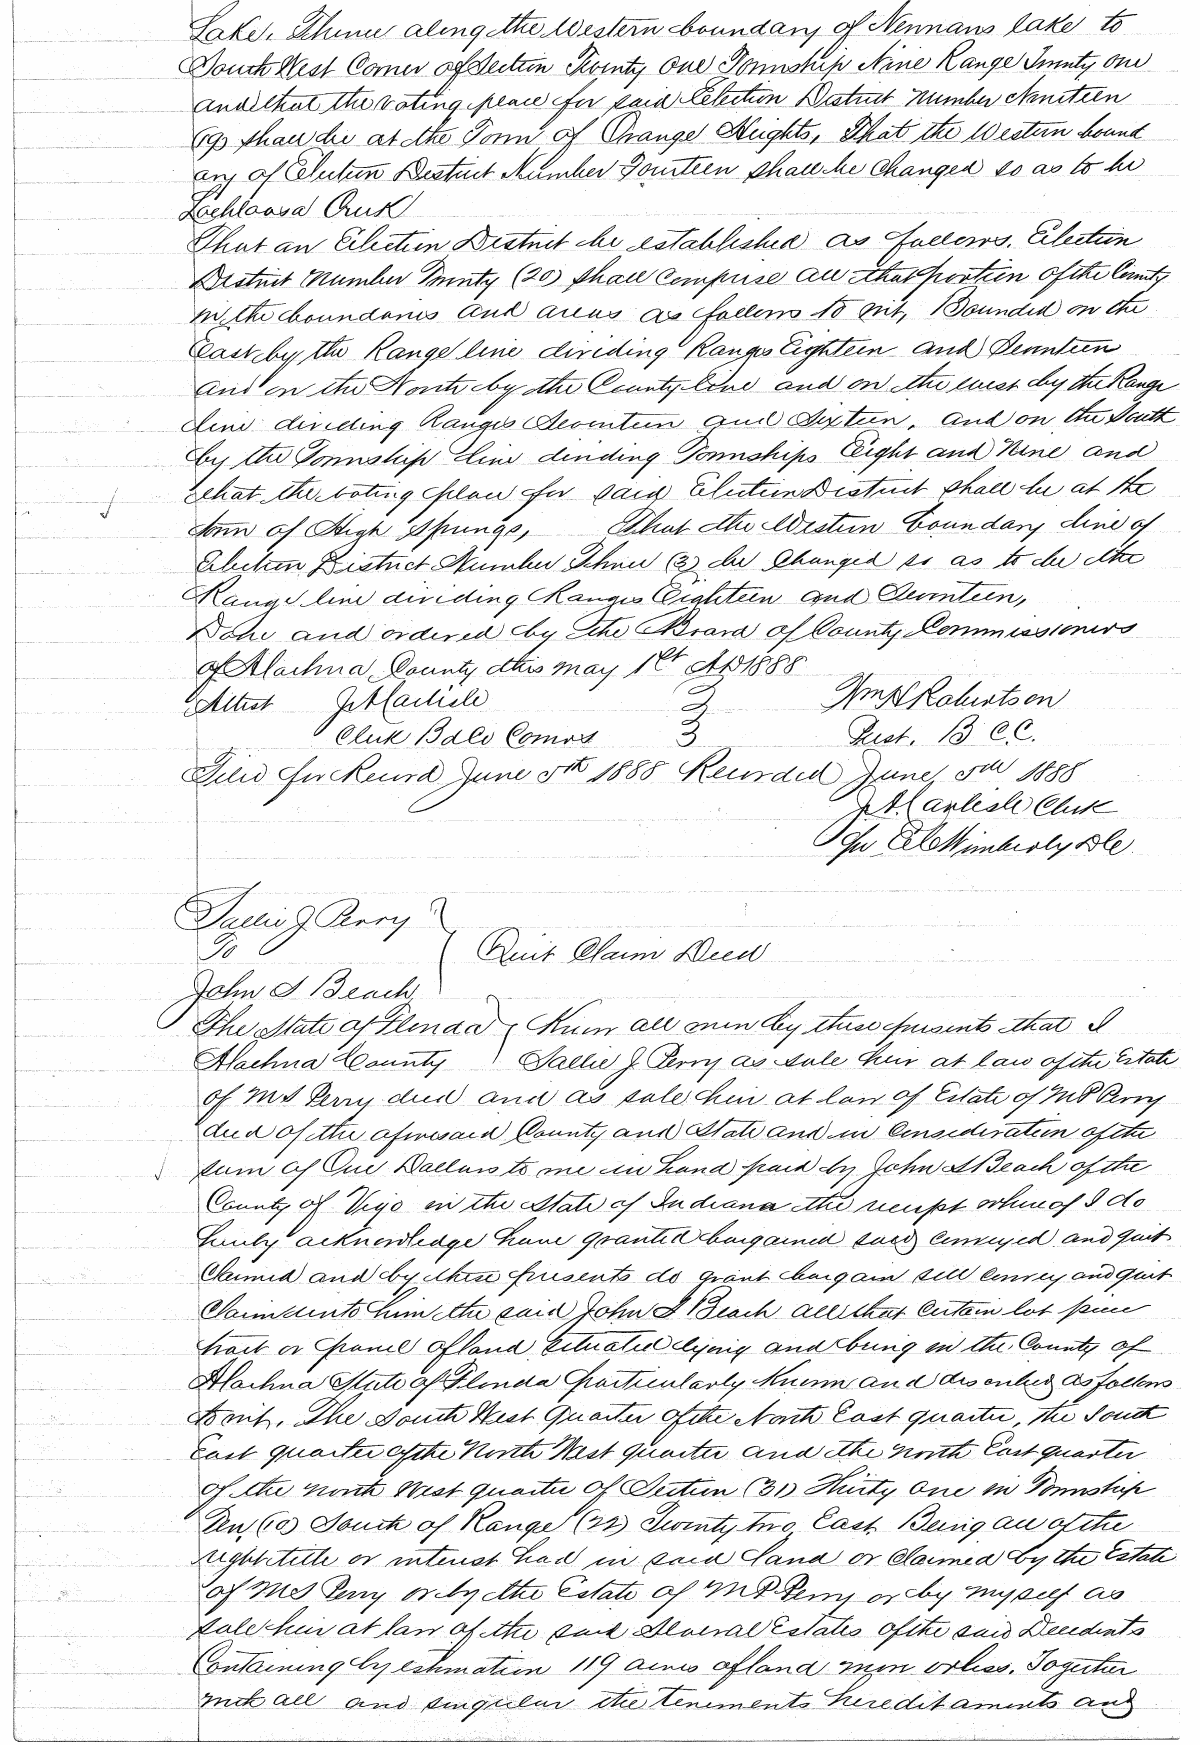 Lake, Thence along the Western boundary of Nennans lake to
South West Corner of Section Twenty one Township Nine Range Twenty one
and that the voting place for said Election District Number Nineteen
(19) shall be at the Town of Orange Heights, That the Western bound
ary of Election District Number Fourteen shall be changed so as to be
Lochloosa Creek
That an Election District be established as follows. Election
District Number Twenty (20) shall comprise all that portion of the County
in the boundaries and areas as follows to wit, Bounded on the
East by the Range line dividing Ranges Eighteen and Seventeen
and on the North by the County line and on the west by the Range
line dividing Ranges Seventeen and Sixteen, and on the South
by the Township line dividing Townships Eight and Nine and
that the voting place for said Election District shall be at the
town of High Springs, That the Western boundary line of
Election District Number Three (3) be changed so as to be the
Range line dividing Ranges Eighteen and Seventeen,
Done and ordered by the Board of County Commissioners
of Alachua County this May 1st AD 1888
Attest J A Carlisle Wm H Robertson
Clerk B of Co Comrs Prest. B C.C.
Filed for Record June 5th 1888 Recorded June 5th 1888
J A Carlisle Clerk
Per Wimberly DC
Sallie J Perry
To
Quit Claim Deed
John S Beach
The State of Florida Know all men by these presents that I
Alachua County Sallie J. Perry as sole heir at law of the Estate
of M S Perry decd and as sole heir at law of Estate of M P Perry
decd of the aforesaid County and State and in Consideration of the
sum of One Dollars to me in hand paid by John S Beach of the
County of Vigo in the State of Indiana the receipt whereof I do
hereby acknowledge have granted bargained sold conveyed and quit
claimed and by these presents do grant bargain sell convey and quit
claim unto him the said John S Beach all that certain lot piece
tract or parcel of land situated lying and being in the County of
Alachua State of Florida particularly known and described as follows
to wit. The South West Quarter of the North East quarter, the South
East quarter of the North West quarter and the north East quarter
of the north West quarter of Section (31) Thirty one in Township
Ten (10) South of Range (22) Twenty two East Being all of the
right title or interest had in said land or claimed by the Estate
of M S Perry or by the Estate of M P Perry or by myself as
sole heir at law of the said Several Estates of the said Decedents
Containing by estimation 119 acres of land more or less. Together
with all and singular the tenements hereditaments and